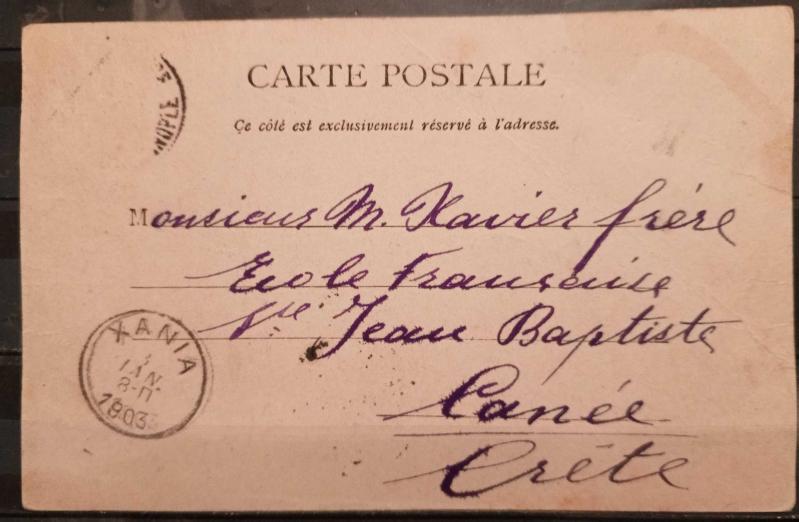 NOPLE
CARTE POSTALE
Ce côté est exclusivement réservé à l'adresse.
Monsieur M. Xavier frère
Ecole Française
Jean Baptiste
Canée
Crète
XANIA
IAN.
8-Π
1903